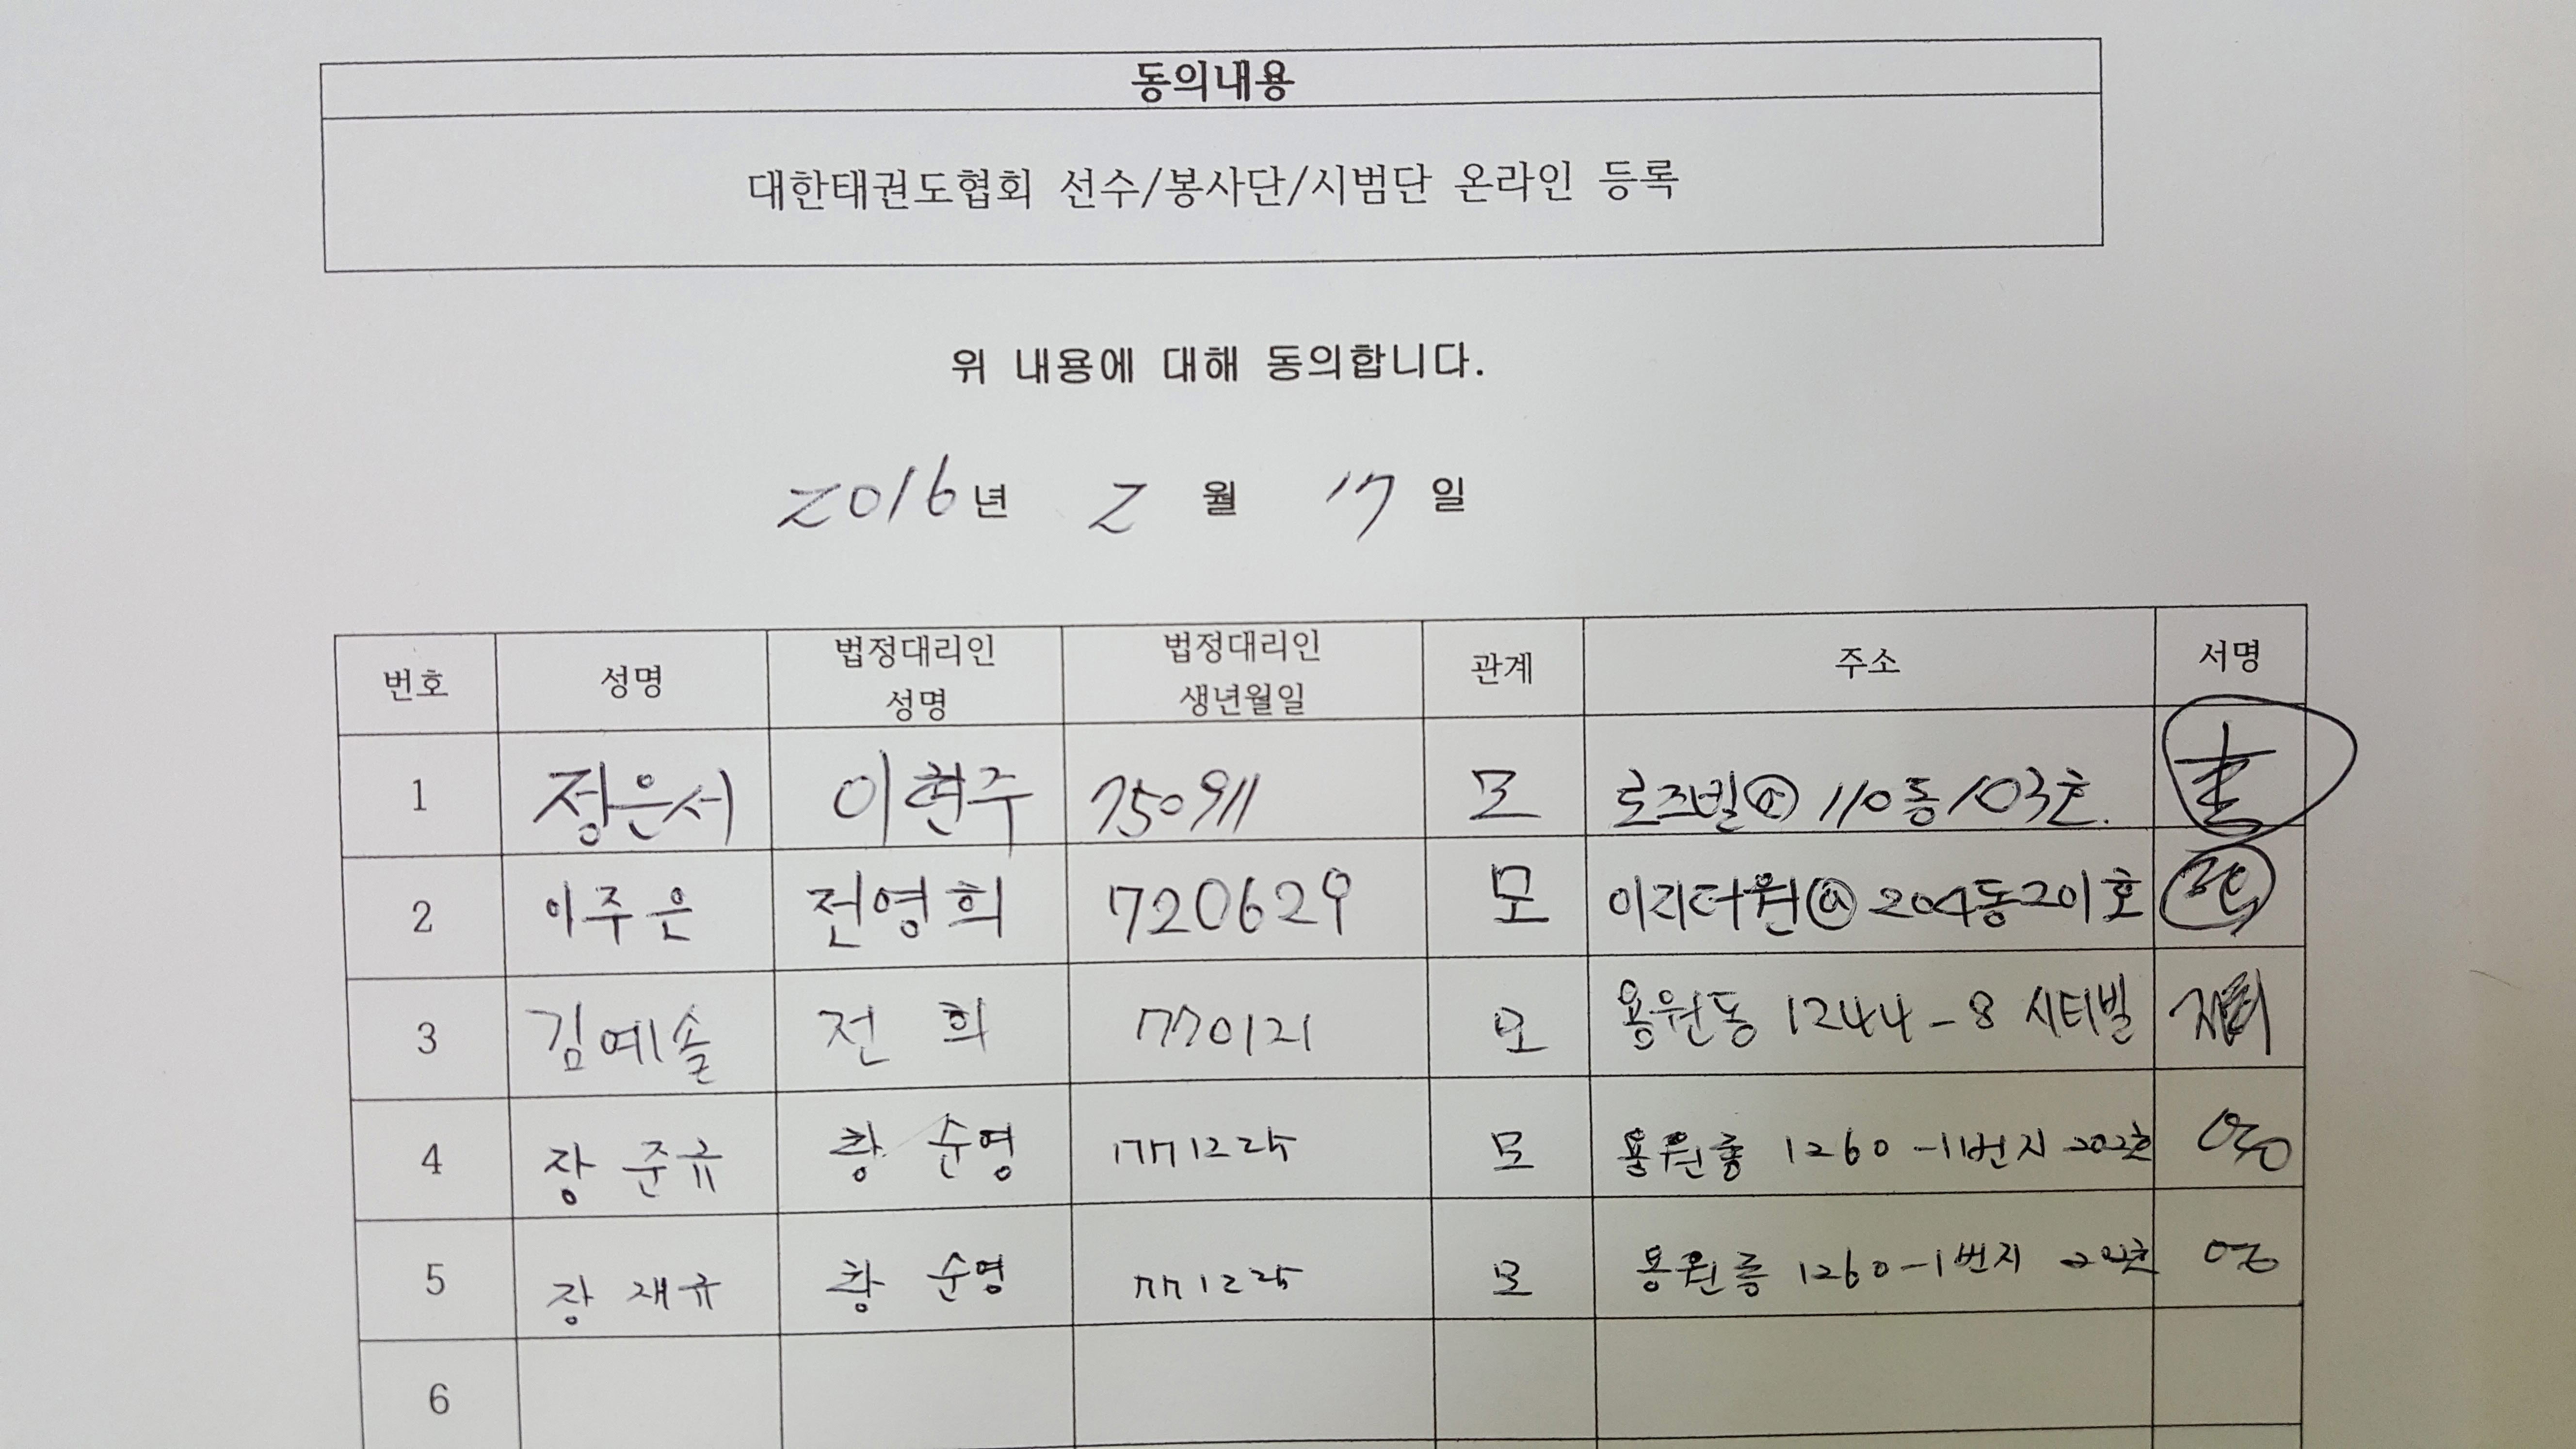 동의내용
대한태권도협회 선수/봉사단/시범단 온라인 등록
위 내용에 대해 동의합니다.
2016년 2월 17일
번호 성명 법정대리인 성명 법정대리인 생년월일 관계 주소 서명
1 정은서 이현주 750911 모 로즈빌ⓐ 110동 103호.
2 이주은 전영희 720629 모 이지더원ⓐ 204동 201호
3 김예솔 전희 770121 모 용원동 1244-8 시티빌
4 장준규 황순영 771225 모 용원동 1260-1번지 202호
5 장재규 황순영 771225 모 용원동 1260-1번지
6